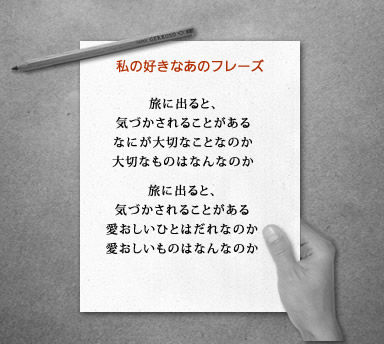 私の好きなあのフレーズ
旅に出ると、
気づかされることがある
なにが大切なことなのか
大切なものはなんなのか
旅に出ると、
気づかされることがある
愛おしいひとはだれなのか
愛おしいものはなんなのか